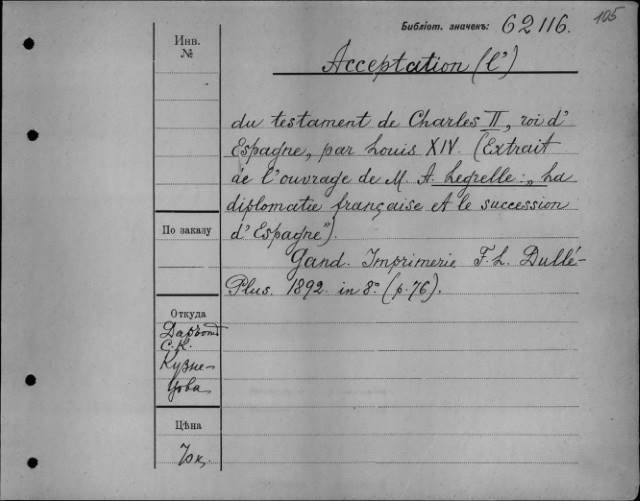 105
Библіот. значекъ: 62116.
Инв.
№
Acceptation (l')
du testament de Charles II, roi d'
Espagne, par Louis XIV. (Extrait
de l'ouvrage de M. A. Legrelle: „La
diplomatie française et le succession
d'Espagne").
Gand. Imprimerie F. L. Dullé-
Plus. 1892 in 8º (p. 76).
По заказу
Откуда
Даръ отъ
С. К.
Кузне-
цова
Цѣна